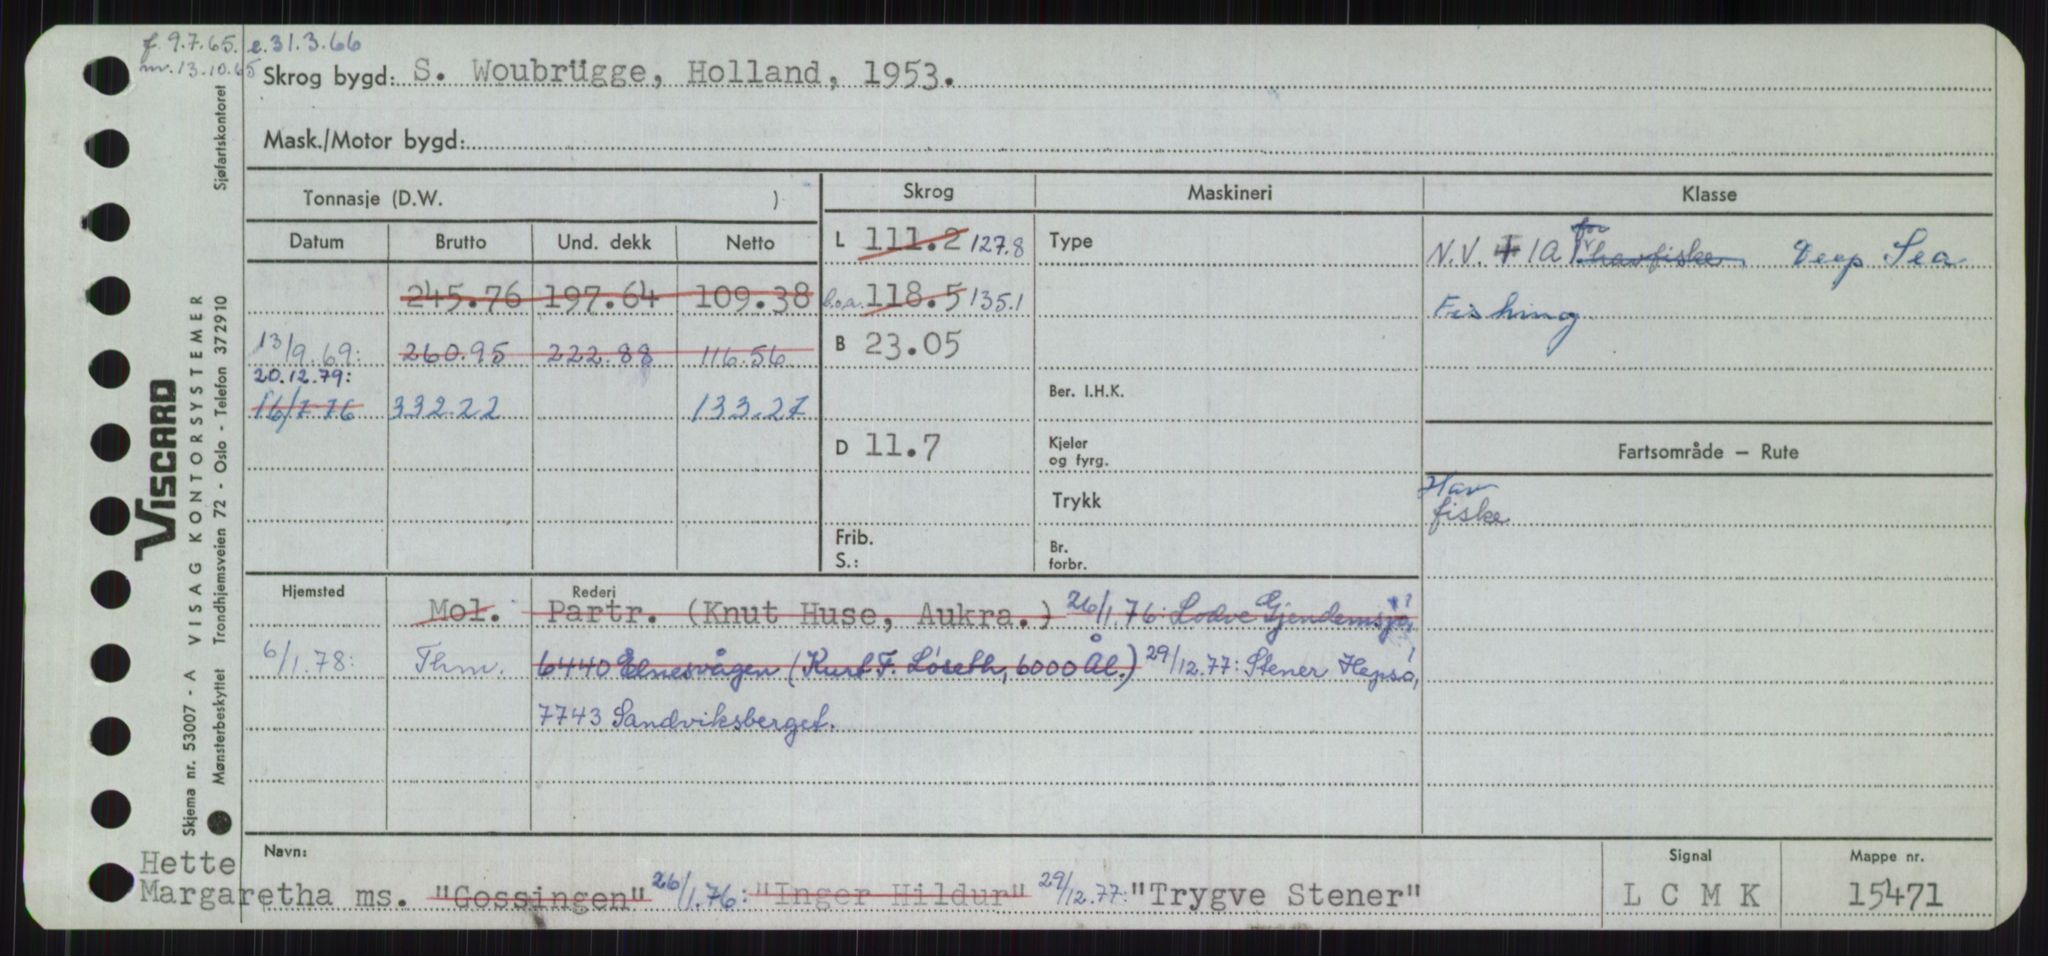 f. 9.7.65. e. 31.3.66
nv. 13.10.65
Skrog bygd: S. Woubrügge, Holland, 1953.
Mask./Motor bygd:
Tonnasje (D.W. )
Skrog
Maskineri
Klasse
Datum Brutto Und. dekk Netto
L 111.2 127.8
Type
N.V. 1A for havfiske Deep Sea
245.76 197.64 109.38
l.o.a. 118.5 135.1
Fishing
13/9.69: 260.95 222.88 116.56
B 23.05
20.12.79:
16/7 76 332.22 133.27
Ber. I.H.K.
D 11.7
Kjeler
og fyrg.
Fartsområde — Rute
Trykk
Hav
fiske
Frib.
S.:
Br.
forbr.
Hjemsted
Rederi
Mol. Partr. (Knut Huse, Aukra.) 26/1.76: Lodve Gjendemsjø,
6/1.78: Thm. 6440 Elnesvågen (Kurt F. Løseth, 6000 Ål.) 29/12.77: Stener Hepsø,
7743 Sandviksberget.
Navn:
Signal
Mappe nr.
Hette
Margaretha ms. "Gossingen" 26/1.76: "Inger Hildur" 29/12.77: "Trygve Stener"
L C M K
15471
VISCARD
Skjema nr. 53007 - A VISAG KONTORSYSTEMER
Mønsterbeskyttet Trondhjemsveien 72 - Oslo - Telefon 372910
Sjøfartskontoret